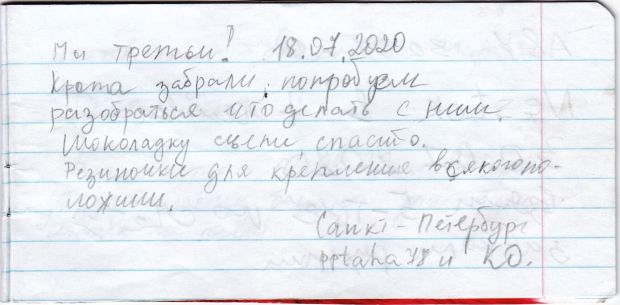 Мы третьи! 18.07.2020
Крота забрали, попробуем
разобраться что делать с ним.
Шоколадку съели, спасибо.
Резиночки для крепления всякого по-
ложили.
Санкт-Петербург
pptaha78 и КО.